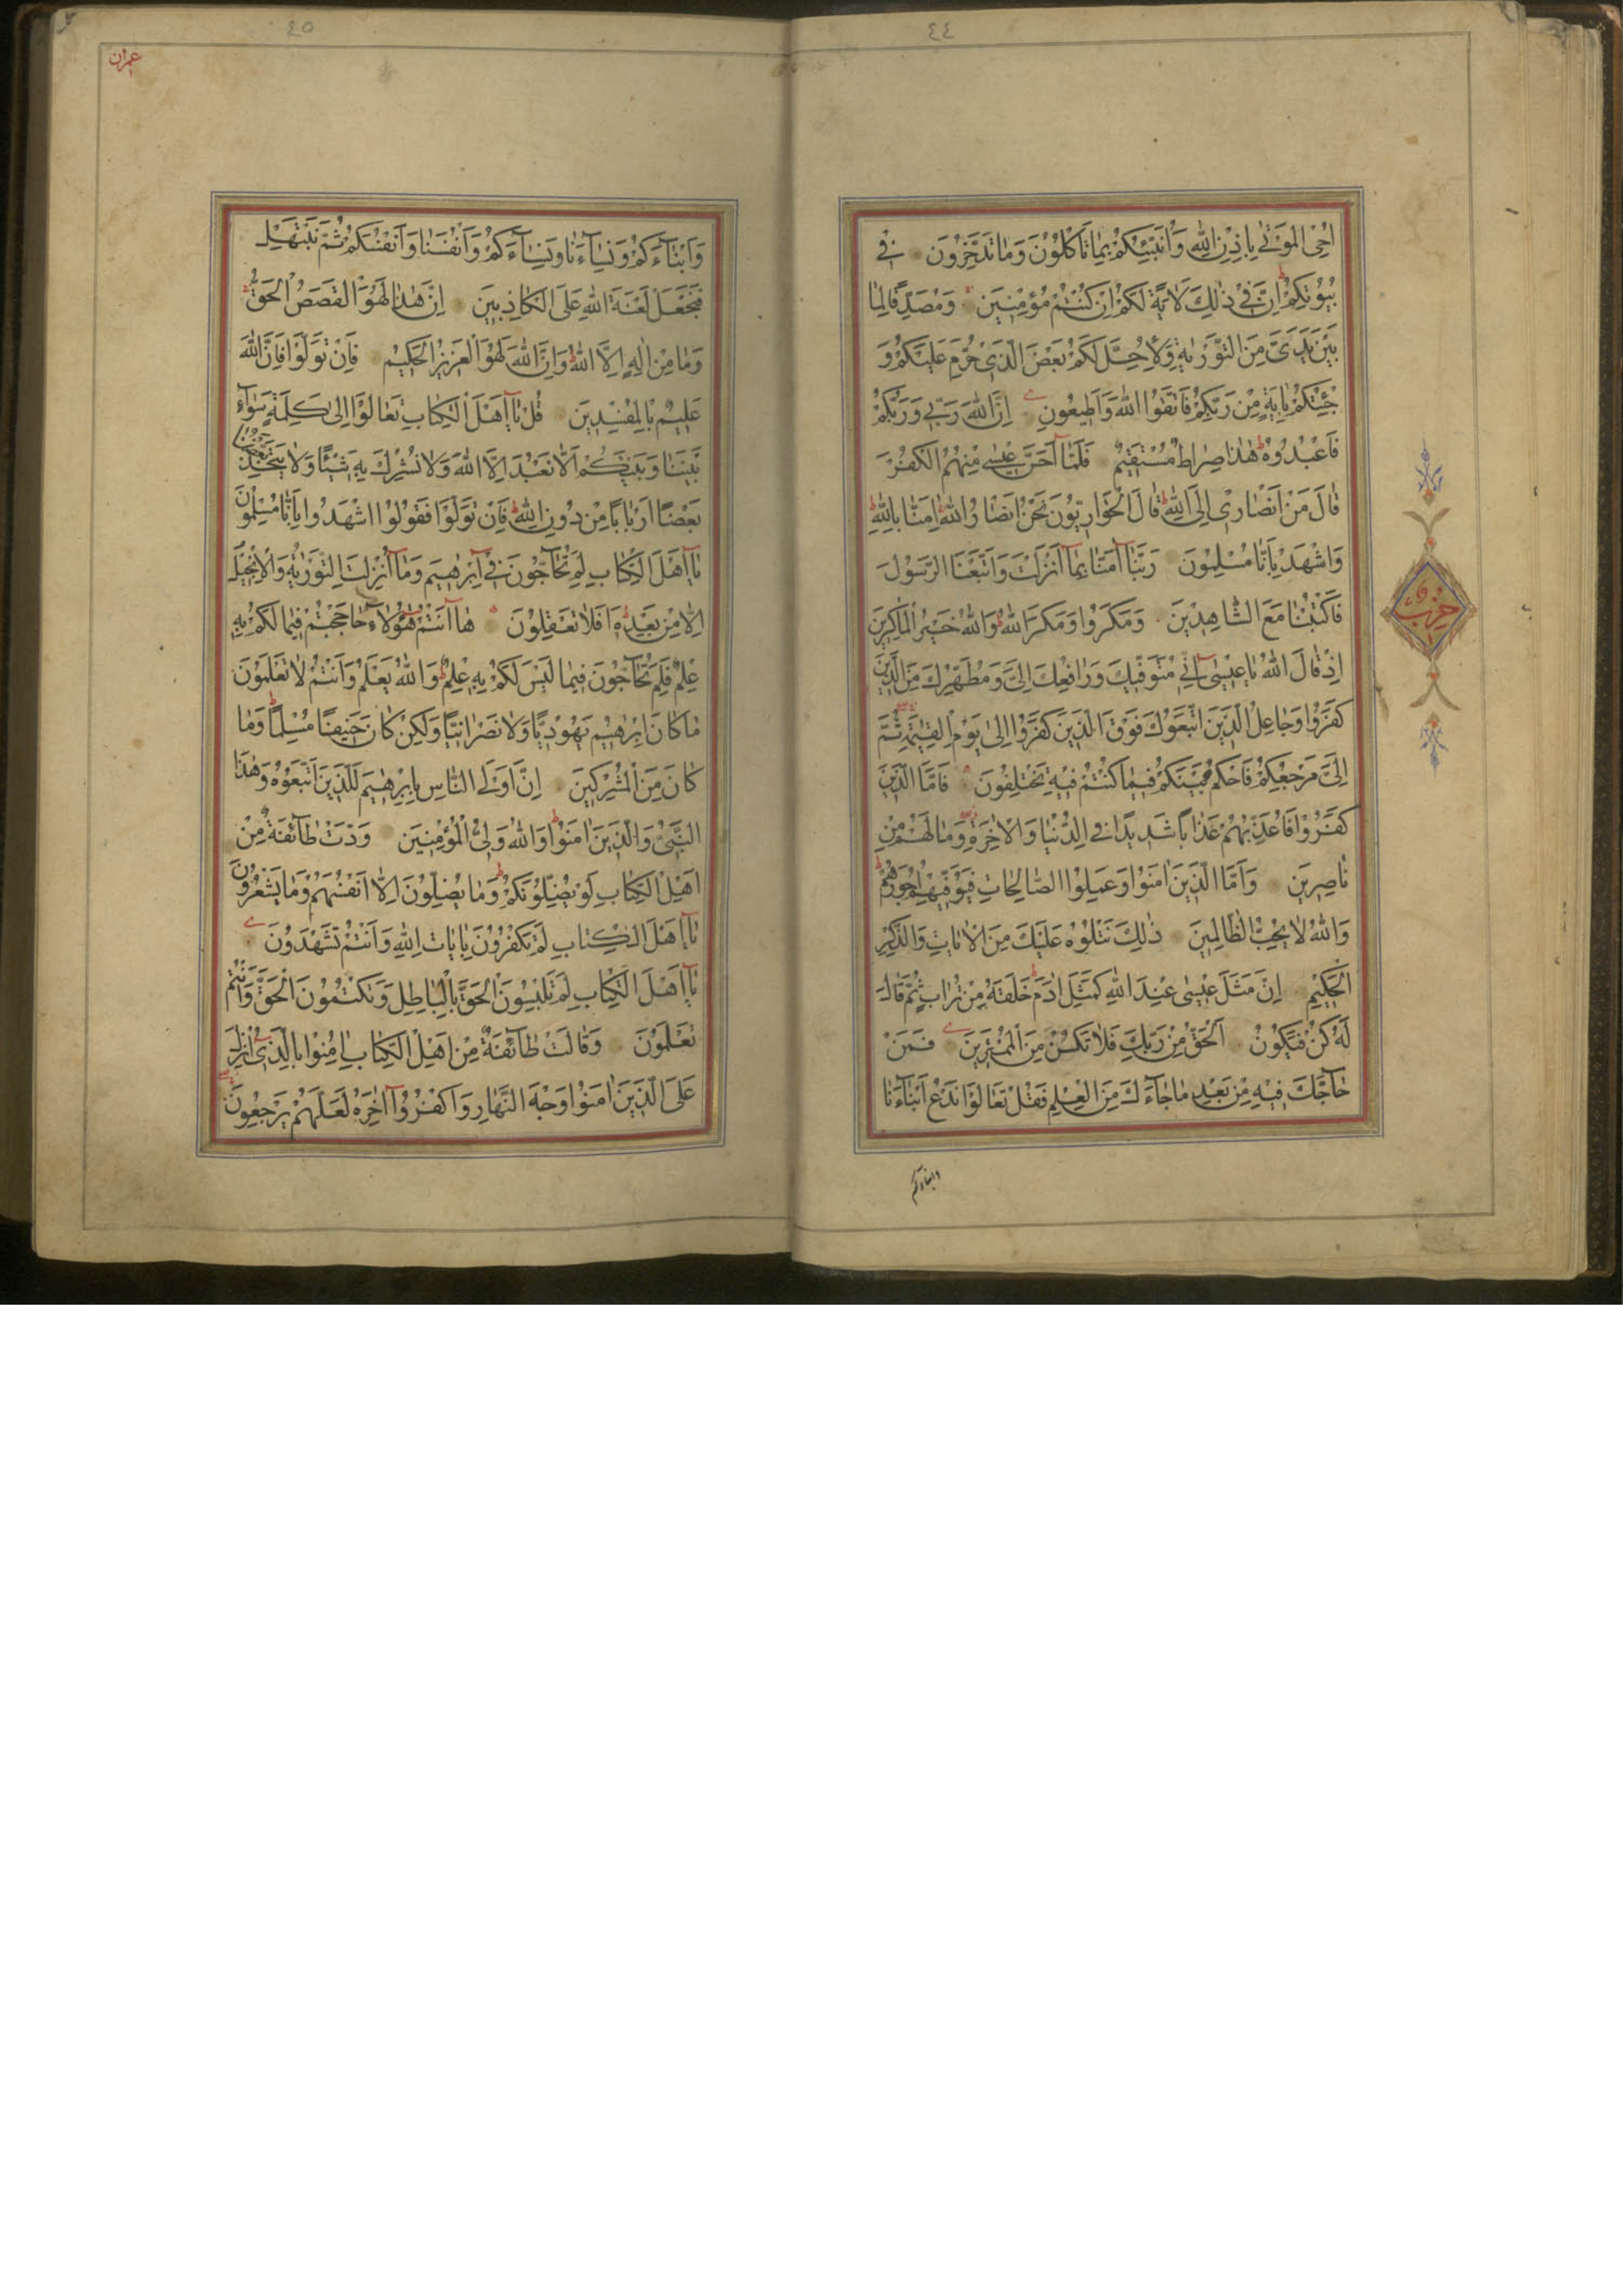 ٤٤
اُحْيِ الْمَوْتٰى بِاِذْنِ اللّٰهِ وَاُنَبِّئُكُمْ بِمٰا تَاْكُلُوُنَ وَمٰا تَدَّخِرُونَ فى
بُيُوُتِكُمْ اِنَّ فى ذٰلِكَ لَاٰيَةً لَكُمْ اِنْ كُنْتُمْ مُؤْمِنينَ وَمُصَدِّقًا لِمٰا
بَيْنَ يَدَىَّ مِنَ التَّوْرٰيةِ وَلِاُحِلَّ لَكُمْ بَعْضَ الَّذى حُرِّمَ عَلَيْكُمْ وَ
جِئْتُكُمْ بِاٰيَةٍ مِنْ رَبِّكُمْ فَاتَّقُوا اللّٰهَ وَاَطيعُونِ اِنَّ اللّٰهَ رَبّى وَرَبُّكُمْ
فَاعْبُدُوُهُ هٰذٰا صِرٰاطٌ مُسْتَقيمٌ فَلَمّٰا اَحَسَّ عيسٰى مِنْهُمُ الْكُفْرَ
قٰالَ مَنْ اَنْصٰارى اِلَى اللّٰهِ قٰالَ الْحَوٰارِيّوُنَ نَحْنُ اَنْصٰارُ اللّٰهِ اٰمَنّٰا بِاللّٰهِ
وَاشْهَدْ بِاَنّٰا مُسْلِمُونَ رَبَّنٰا اٰمَنّٰا بِمٰا اَنْزَلْتَ وَاتَّبَعْنَا الرَّسُولَ
فَاكْتُبْنٰا مَعَ الشّٰاهِدينَ وَمَكَرُوا وَمَكَرَ اللّٰهُ وَاللّٰهُ خَيْرُ الْمٰاكِرينَ
اِذْ قٰالَ اللّٰهُ يٰا عيسٰى اِنّى مُتَوَفّيكَ وَرٰافِعُكَ اِلَىَّ وَمُطَهِّرُكَ مِنَ الَّذينَ
كَفَرُوا وَجٰاعِلُ الَّذينَ اتَّبَعُوكَ فَوْقَ الَّذينَ كَفَرُوا اِلىٰ يَوْمِ الْقِيٰمَةِ ثُمَّ
اِلَىَّ مَرْجِعُكُمْ فَاَحْكُمُ بَيْنَكُمْ فيمٰا كُنْتُمْ فيهِ تَخْتَلِفُونَ فَاَمَّا الَّذينَ
كَفَرُوا فَاُعَذِّبُهُمْ عَذٰابًا شَديدًا فِى الدُّنْيٰا وَالْاٰخِرَةِ وَمٰا لَهُمْ مِنْ
نٰاصِرينَ وَاَمَّا الَّذينَ اٰمَنُوا وَعَمِلُوا الصّٰالِحٰاتِ فَيُوَفّيهِمْ اُجُورَهُمْ
وَاللّٰهُ لاٰ يُحِبُّ الظّٰالِمينَ ذٰلِكَ نَتْلُوهُ عَلَيْكَ مِنَ الْاٰيٰاتِ وَالذِّكْرِ
الْحَكيمِ اِنَّ مَثَلَ عيسٰى عِنْدَ اللّٰهِ كَمَثَلِ اٰدَمَ خَلَقَهُ مِنْ تُرٰابٍ ثُمَّ قٰالَ
لَهُ كُنْ فَيَكُونُ اَلْحَقُّ مِنْ رَبِّكَ فَلاٰ تَكُنْ مِنَ الْمُمْتَرينَ فَمَنْ
حٰاجَّكَ فيهِ مِنْ بَعْدِ مٰا جٰاءَكَ مِنَ الْعِلْمِ فَقُلْ تَعٰالَوْا نَدْعُ اَبْنٰاءَنٰا
وابناءكم
حزب
٤٥
عمران
وَاَبْنٰاءَكُمْ وَنِسٰاءَنٰا وَنِسٰاءَكُمْ وَاَنْفُسَنٰا وَاَنْفُسَكُمْ ثُمَّ نَبْتَهِلْ
فَنَجْعَلْ لَعْنَةَ اللّٰهِ عَلَى الْكٰاذِبينَ اِنَّ هٰذٰا لَهُوَ الْقَصَصُ الْحَقُّ
وَمٰا مِنْ اِلٰهٍ اِلَّا اللّٰهُ وَاِنَّ اللّٰهَ لَهُوَ الْعَزيزُ الْحَكيمُ فَاِنْ تَوَلَّوْا فَاِنَّ اللّٰهَ
عَليمٌ بِالْمُفْسِدينَ قُلْ يٰا اَهْلَ الْكِتٰابِ تَعٰالَوْا اِلىٰ كَلِمَةٍ سَوٰاءٍ
بَيْنَنٰا وَبَيْنَكُمْ اَلّٰا نَعْبُدَ اِلَّا اللّٰهَ وَلاٰ نُشْرِكَ بِهِ شَيْئًا وَلاٰ يَتَّخِذَ بَعْضُنٰا
بَعْضًا اَرْبٰابًا مِنْ دُونِ اللّٰهِ فَاِنْ تَوَلَّوْا فَقُولُوا اشْهَدُوا بِاَنّٰا مُسْلِمُونَ
يٰا اَهْلَ الْكِتٰابِ لِمَ تُحٰاجُّونَ فى اِبْرٰهيمَ وَمٰا اُنْزِلَتِ التَّوْرٰيةُ وَالْاِنْجيلُ
اِلّٰا مِنْ بَعْدِهِ اَفَلاٰ تَعْقِلُونَ هٰا اَنْتُمْ هٰؤُلاٰءِ حٰاجَجْتُمْ فيمٰا لَكُمْ بِهِ
عِلْمٌ فَلِمَ تُحٰاجُّونَ فيمٰا لَيْسَ لَكُمْ بِهِ عِلْمٌ وَاللّٰهُ يَعْلَمُ وَاَنْتُمْ لاٰ تَعْلَمُونَ
مٰا كٰانَ اِبْرٰهيمُ يَهُودِيًّا وَلاٰ نَصْرٰانِيًّا وَلٰكِنْ كٰانَ حَنيفًا مُسْلِمًا وَمٰا
كٰانَ مِنَ الْمُشْرِكينَ اِنَّ اَوْلَى النّٰاسِ بِاِبْرٰهيمَ لَلَّذينَ اتَّبَعُوهُ وَهٰذَا
النَّبِىُّ وَالَّذينَ اٰمَنُوا وَاللّٰهُ وَلِىُّ الْمُؤْمِنينَ وَدَّتْ طٰائِفَةٌ مِنْ
اَهْلِ الْكِتٰابِ لَوْ يُضِلُّونَكُمْ وَمٰا يُضِلُّونَ اِلّٰا اَنْفُسَهُمْ وَمٰا يَشْعُرُونَ
يٰا اَهْلَ الْكِتٰابِ لِمَ تَكْفُرُونَ بِاٰيٰاتِ اللّٰهِ وَاَنْتُمْ تَشْهَدُونَ
يٰا اَهْلَ الْكِتٰابِ لِمَ تَلْبِسُونَ الْحَقَّ بِالْبٰاطِلِ وَتَكْتُمُونَ الْحَقَّ وَاَنْتُمْ
تَعْلَمُونَ وَقٰالَتْ طٰائِفَةٌ مِنْ اَهْلِ الْكِتٰابِ اٰمِنُوا بِالَّذى اُنْزِلَ
عَلَى الَّذينَ اٰمَنُوا وَجْهَ النَّهٰارِ وَاكْفُرُوا اٰخِرَهُ لَعَلَّهُمْ يَرْجِعُونَ